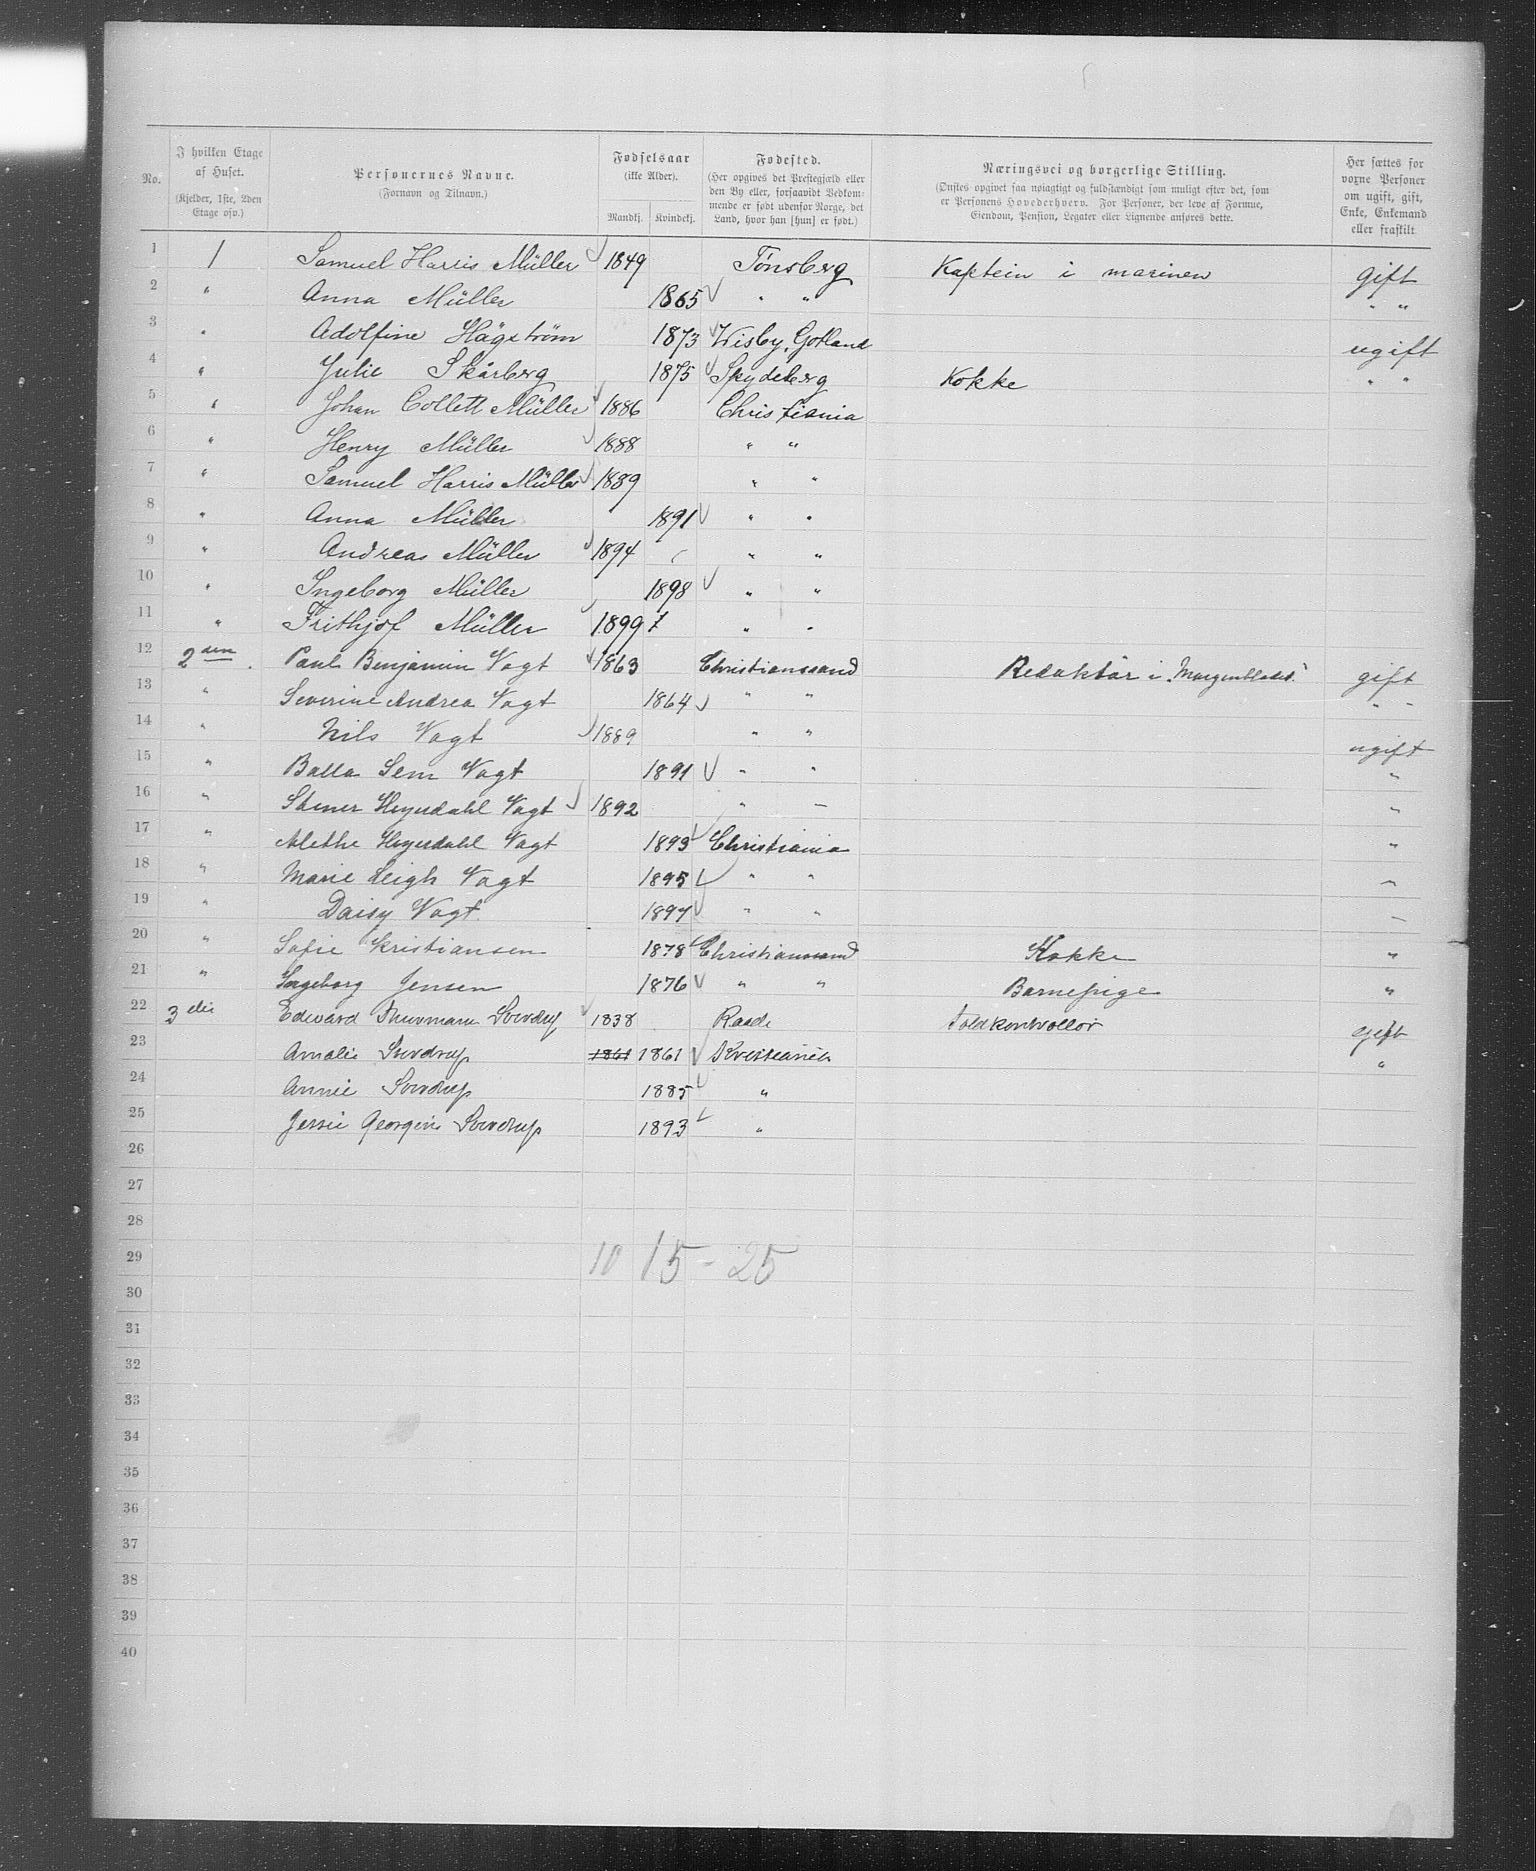 No.
I hvilken Etage af Huset.
(Kjelder, 1ste, 2den Etage osv.)
Personernes Navne.
(Fornavn og Tilnavn.)
Fødselsaar
(ikke Alder).
Mandkj. Kvindekj.
Fødested.
(Her opgives det Prestegjæld eller
den By eller, forsaavidt Vedkom-
mende er født udenfor Norge, det
Land, hvor han [hun] er født.)
Næringsvei og borgerlige Stilling.
(Ønskes opgivet saa nøiagtigt og fuldstændigt som muligt efter det, som
er Personens Hovederhverv. For Personer, der leve af Formue,
Eiendom, Pension, Legater eller Lignende anføres dette.
Her sættes for
voxne Personer
om ugift, gift,
Enke, Enkemand
eller fraskilt.
1 1 Samuel Harris Müller 1849 Tønsberg Kaptein i marinen gift
2 " Anna Müller 1865 " " " "
3 " Adolfine Hägström 1873 Wisby, Gotland ugift
4 " Julie Skårberg 1875 Spydeberg Kokke " "
5 " Johan Collett Müller 1886 Christiania
6 " Henry Müller 1888 " "
7 " Samuel Harris Müller 1889 " "
8 " Anna Müller 1891 " "
9 " Andreas Müller 1894 " "
10 " Ingeborg Müller 1898 " "
11 " Frithjof Müller 1899 " "
12 2den Paul Benjamin Vogt 1863 Christianssand Redaktør i „Morgenbladet" gift
13 " Severine Andrea Vogt 1864 " " " "
14 " Nils Vogt 1889 " " ugift
15 " Balla Sem Vogt 1891 " " "
16 " Stener Heyerdahl Vogt 1892 " " "
17 " Alethe Heyerdahl Vogt 1893 Christiania "
18 " Marie Leigh Vogt 1895 " " "
19 " Daisy Vogt 1897 " " "
20 " Sofie Kristiansen 1878 Christianssand Kokke "
21 " Ingeborg Jensen 1876 " " Barnepige "
22 3die Edward Thurmann Sverdrup 1838 Raade Toldkontrollør gift
23 Amalie Sverdrup 1861 1861 Kristiania "
24 Annie Sverdrup 1885 "
25 Jessie Georgine Sverdrup 1893 "
26
27
28
29 10 15 - 25
30
31
32
33
34
35
36
37
38
39
40